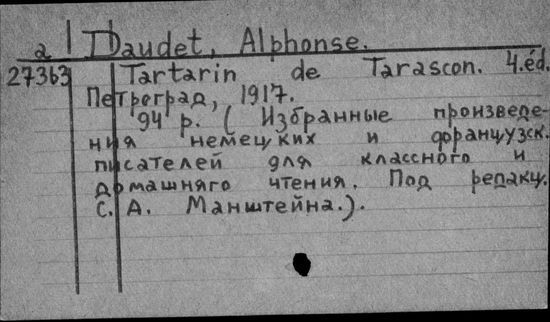 a Daudet, Alphonse.
27363 Tartarin de Tarascon. 4.éd.
Петроград, 1917.
94 p. ( Избранные произведе-
ния немецких и французск.
писателей для классного и
домашняго чтения. Под редакц.
С. А. Манштейна.).